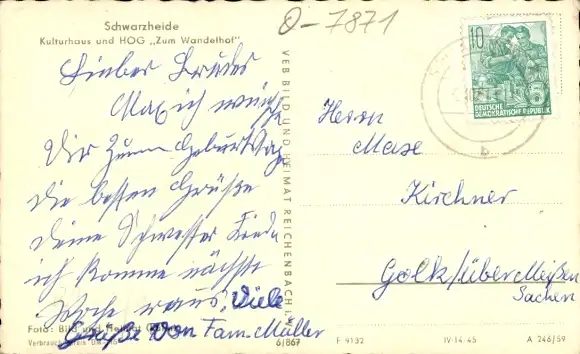 Schwarzheide
Kulturhaus und HOG „Zum Wandelhof"
O-7871
Lieber Bruder
Max ich wünsche
Dir zum Geburtstag
die besten Grüße
deine Schwester Frieda
ich komme nächste
Woche raus. Viele
Grüße von Fam. Müller
Foto: Bild und Heimat
VEB BILD UND HEIMAT REICHENBACH i. V.
6/867
10
DEUTSCHE
DEMOKRATISCHE REPUBLIK
b
Herrn
Maxe
Kirchner
Golk/über Meißen
Sachen
F 9132
IV-14-45
A 246/59